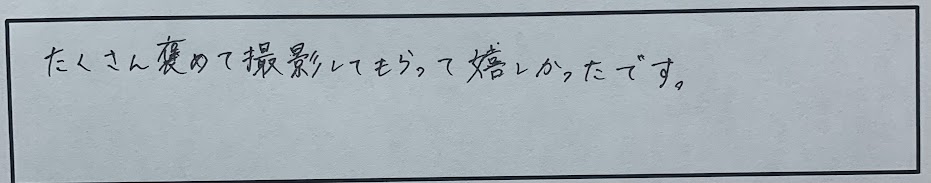 たくさん褒めて撮影してもらって嬉しかったです。